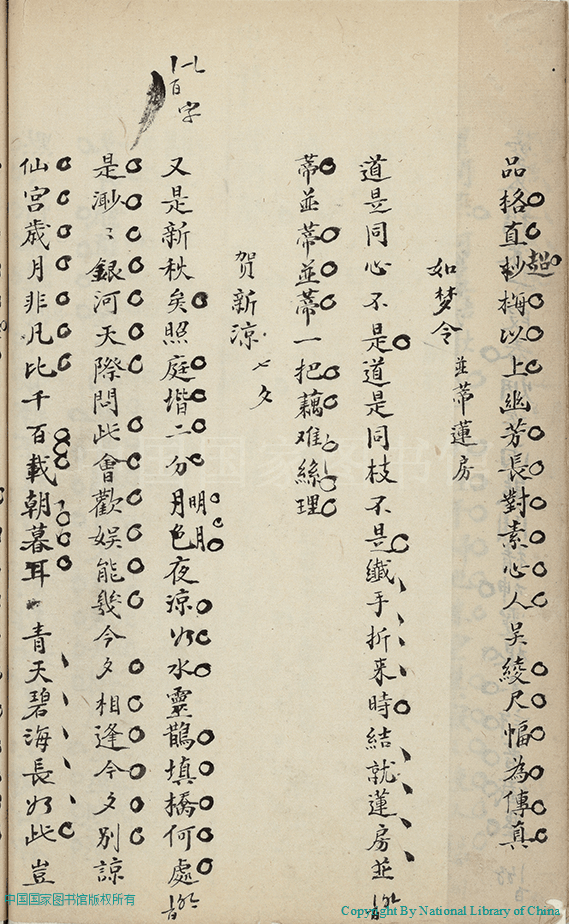 品格直超梅以上幽芳長對素心人吳綾尺幅為傳真
如梦令 並蒂蓮房
道是同心不是道是同枝不是纖手折来時結就蓮房並
蒂並蒂並蒂一把藕难絲理
賀新涼 七夕
百字
又是新秋矣照庭堦二分月色夜涼如水靈鵲填橋何處
明月
是渺〻銀河天際問此會歡娱能幾今夕相逢今夕別諒
仙宮歲月非凡比千百載朝暮耳青天碧海長如此豈
中国国家图书馆
中国国家图书馆版权所有
Copyright By National Library of China